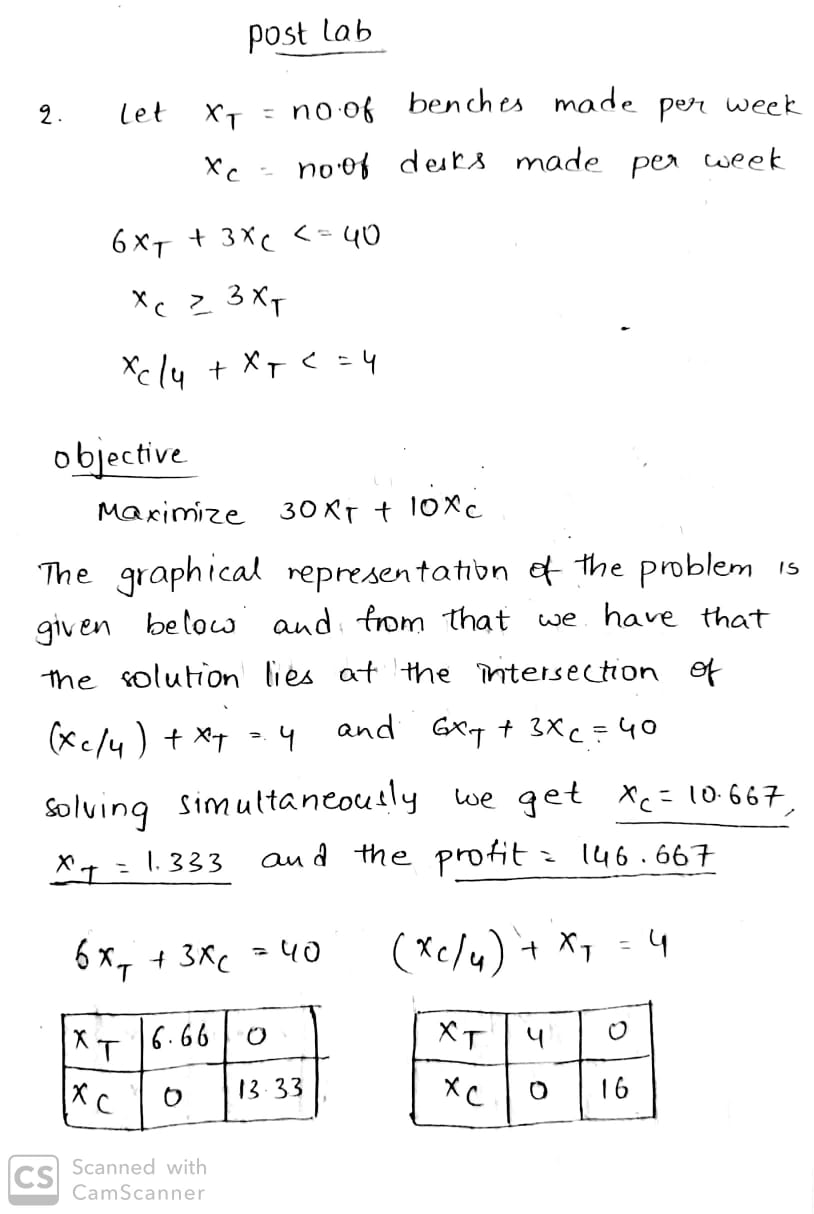 post lab
2. Let XT = no.of benches made per week
Xc = no.of desks made per week
6XT + 3Xc <= 40
Xc ≥ 3XT
Xc/4 + XT <= 4
objective
Maximize 30XT + 10Xc
The graphical representation of the problem is
given below and from that we have that
the solution lies at the intersection of
(Xc/4) + XT = 4 and 6XT + 3Xc = 40
solving simultaneously we get Xc = 10.667,
XT = 1.333 and the profit = 146.667
6XT + 3Xc = 40 (Xc/4) + XT = 4
XT 6.66 0 XT 4 0
Xc 0 13.33 Xc 0 16
CS Scanned with
CamScanner